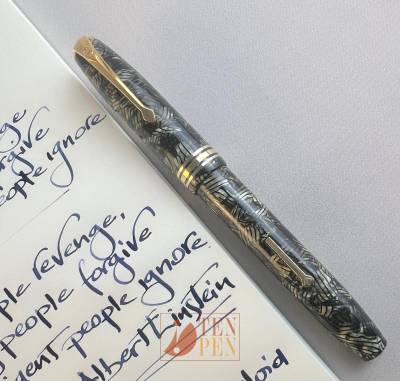 nge,
orgive
eople ignore
ple revenge,
people forgive
igent people ignore.
Albert Einstein
loid
TEN
PEN